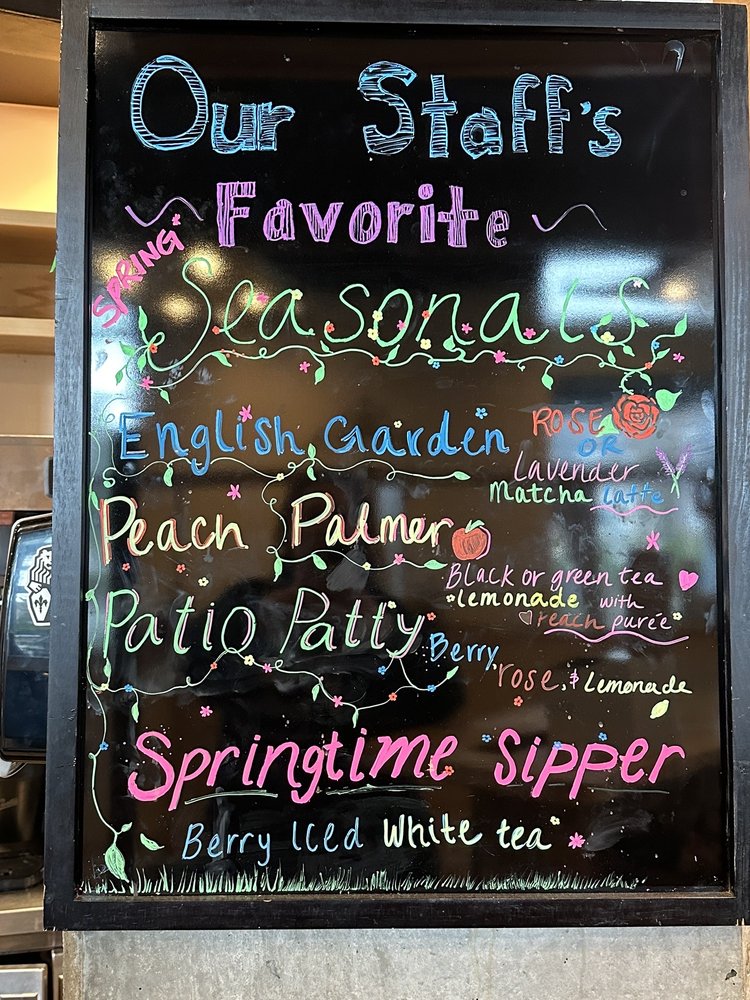 Our Staff's
Favorite
SPRING*
Seasonals
English Garden
ROSE
OR
Lavender
Matcha Latte
Peach Palmer
Black or green tea
*Lemonade with
Peach purée*
Patio Patty
Berry,
rose, & Lemonade
Springtime Sipper
Berry Iced White tea